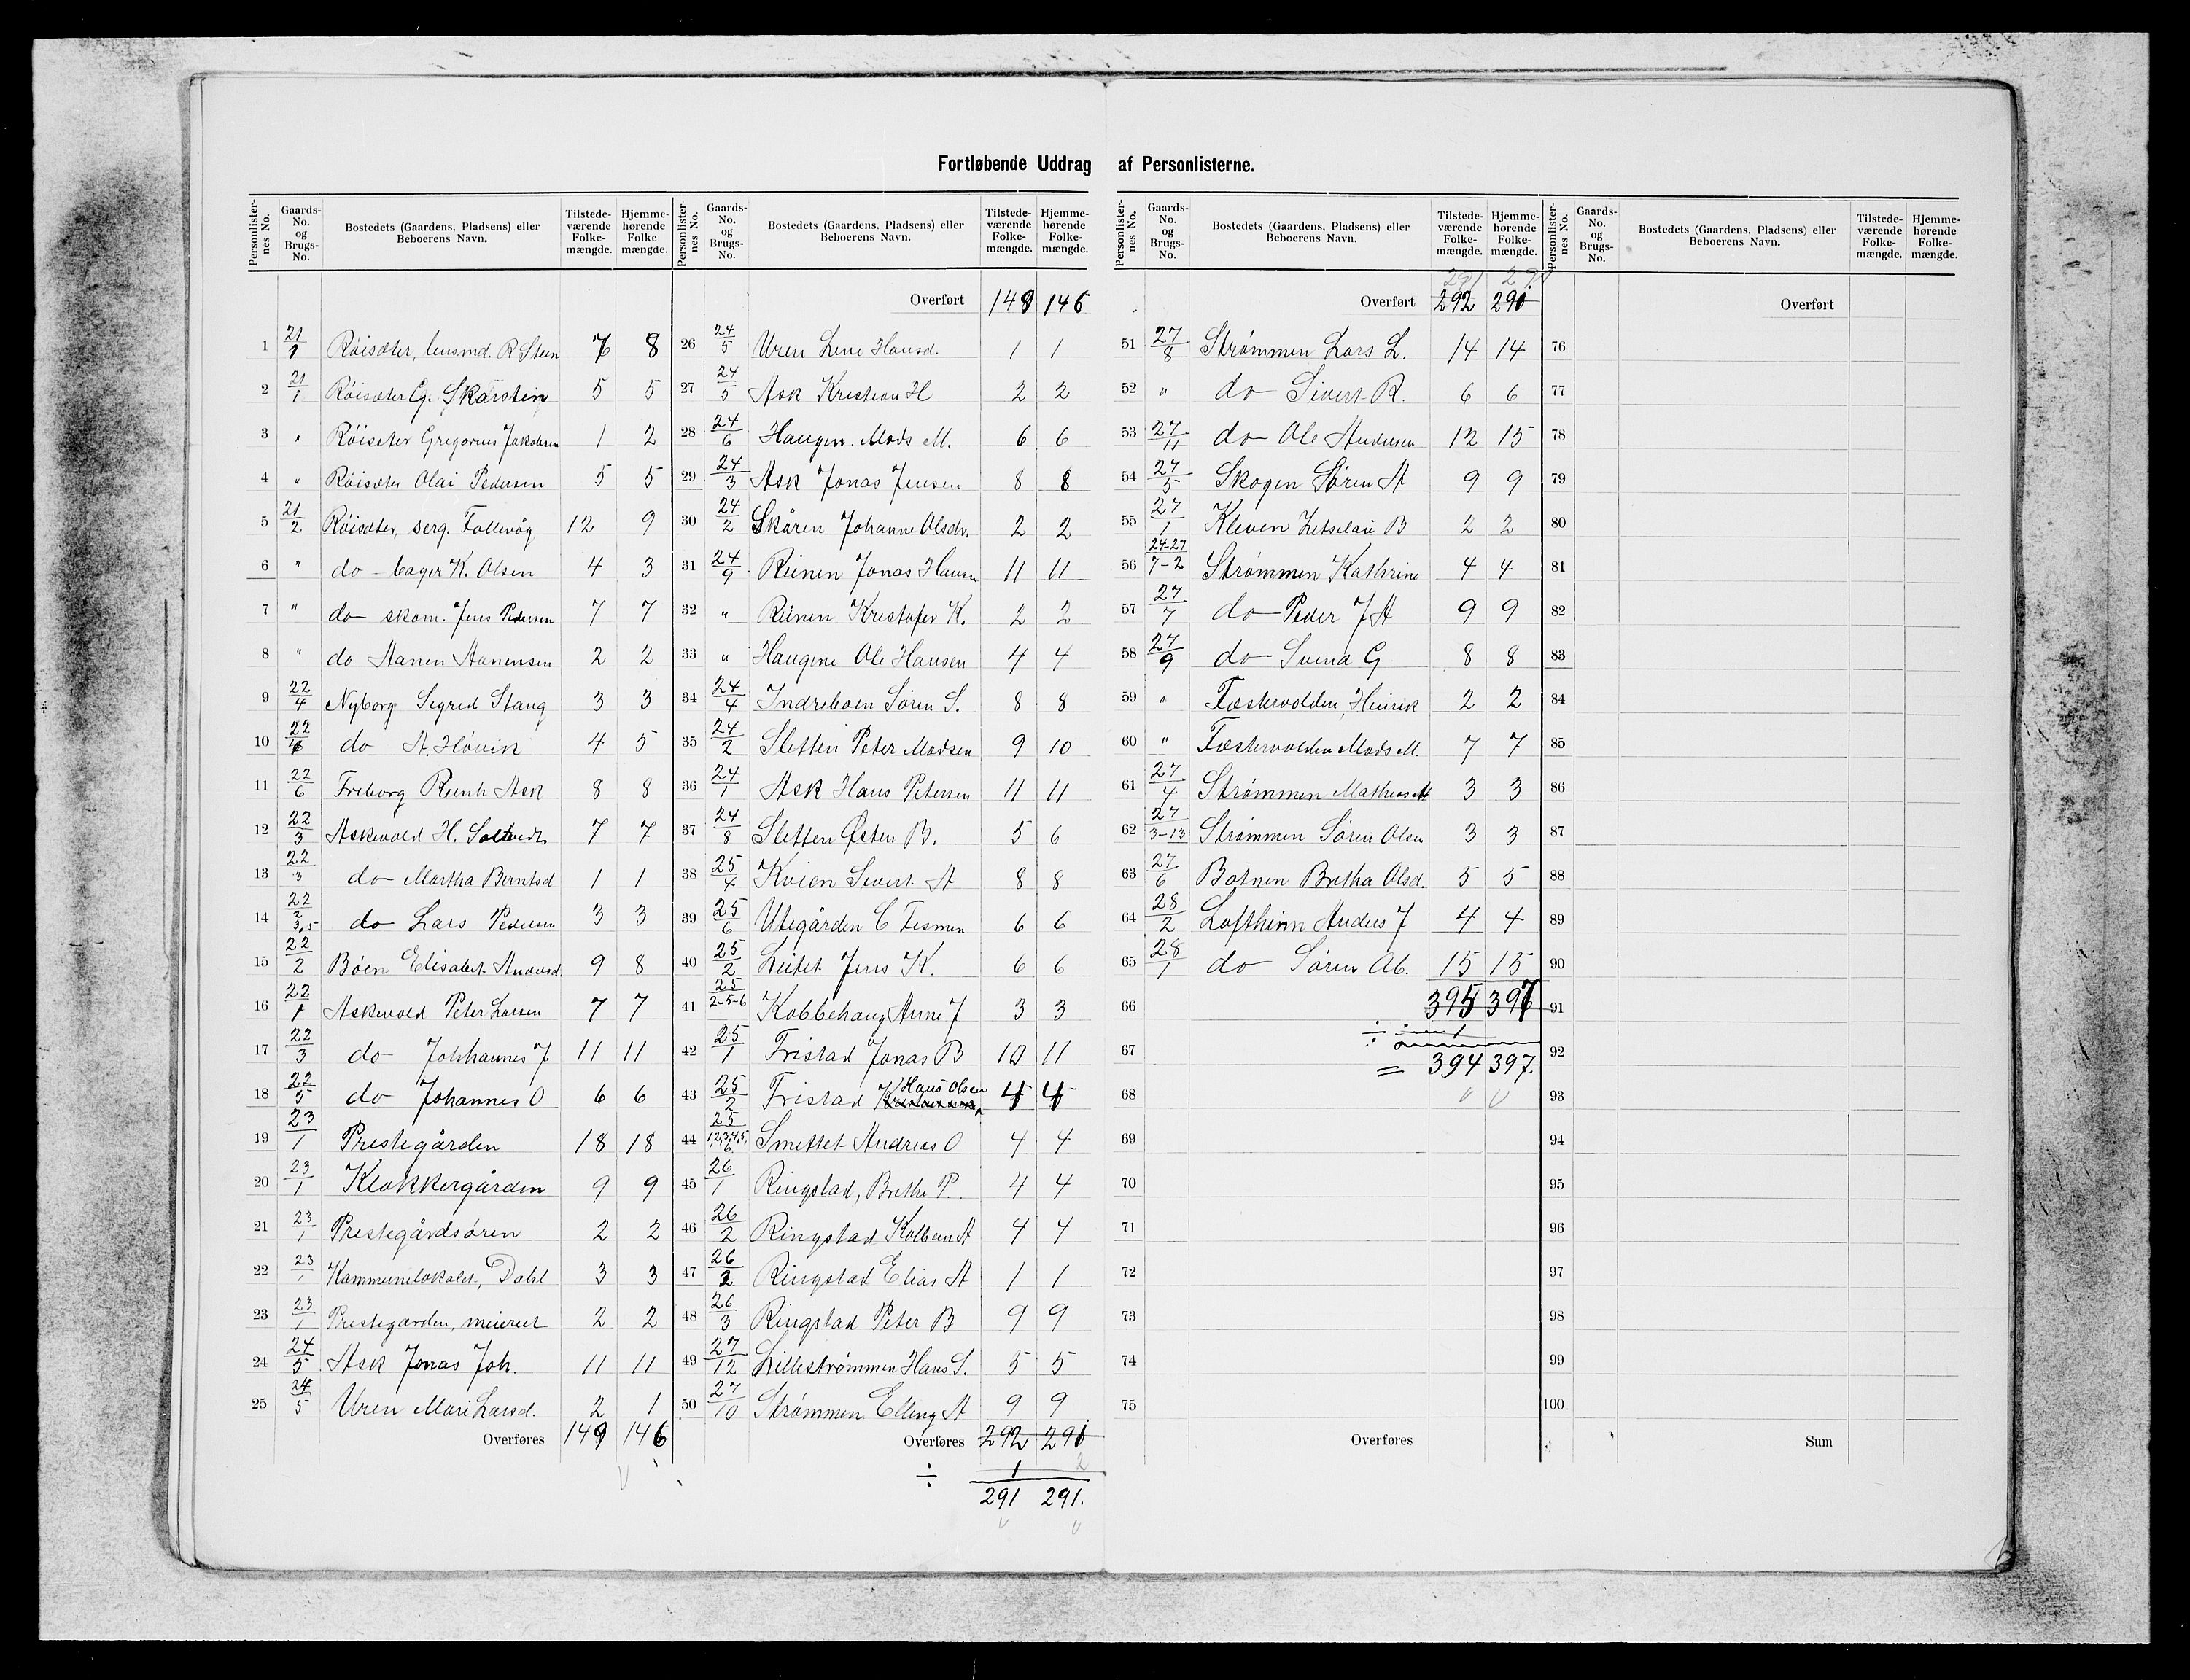 Fortløbende Uddrag af Personlisterne.
Personlister-nes No. Gaards-No. og Brugs-No. Bostedets (Gaardens, Pladsens) eller Beboerens Navn. Tilstede-værende Folke-mængde. Hjemme-hørende Folke mængde.
1 21/1 Röisæter, lensmd. R Steen 7 8
2 21/1 Röisæter G. Skarstein 5 5
3 " Röiseter Gregorius Jakobsen 1 2
4 " Röisæter Olai Pedersen 5 5
5 21/2 Röisæter, serg. Follevåg 12 9
6 " do - bager K. Olsen 4 3
7 " do skom. Jens Pedersen 7 7
8 " do Aanen Aanensen 2 2
9 22/4 Nyborg Sigrid Stang 3 3
10 22/4 do A. Hövik 4 5
11 22/6 Friborg Reinh Ask 8 8
12 22/3 Askevold H. 7 7
13 22/3 do Martha Berntsd 1 1
14 22/2 3,5 do Lars Pedersen 3 3
15 22/2 Böen Elisabet Andersd. 9 8
16 22/1 Askevold Peter Larsen 7 7
17 22/3 do Johannes J 11 11
18 22/5 do Johannes O 6 6
19 23/1 Prestegården 18 18
20 23/1 Klokkergården 9 9
21 23/1 Prestegårdsören 2 2
22 23/1 Kommunelokalet, Dahl 3 3
23 23/1 Prestegarden, meieriet 2 2
24 24/5 Ask Jonas Joh. 11 11
25 24/5 Uren Mari Larsd. 2 1
Overføres 149 146
Personlister-nes No. Gaards-No. og Brugs-No. Bostedets (Gaardens, Pladsens) eller Beboerens Navn. Tilstede-værende Folke-mængde. Hjemme-hørende Folke-mængde.
Overført 149 146
26 24/5 Uren Lene Hansd. 1 1
27 24/5 Ask Kristian H 2 2
28 24/6 Haugen Mads M. 6 6
29 24/3 Ask Jonas Jensen 8 8
30 24/2 Skåren Johanne Olsdr. 2 2
31 24/9 Reinen Jonas Hansn 11 11
32 " Reinen Kristofer K. 2 2
33 " Haugene Ole Hansen 4 4
34 24/4 Indreboen Sören S. 8 8
35 24/2 Sletten Peter Madsen 9 10
36 24/1 Ask Hans Petersen 11 11
37 24/8 Sletten Östen B. 5 6
38 25/4 Kvien Sivert A 8 8
39 25/6 Utegården C Tesmen 6 6
40 25/2 Leitet Jens K. 6 6
41 25/2-5-6 Kobbehaug Anne J 3 3
42 25/1 Fristad Jonas B 10 11
43 25/2 Fristad Hans Olsen 4 4
44 25/1,2,3,4,5,6 Smettet Andreas O 4 4
45 26/1 Ringstad, Brethe P. 4 4
46 26/2 Ringstad Kolbein A 4 4
47 26/2 Ringstad Elias A 1 1
48 26/3 Ringstad Peter B 9 9
49 27/12 Lillestrømmen Hans S. 5 5
50 27/10 Strømmen Elling A 9 9
Overføres 292 291
÷ 1 2
291 291.
Personlister-nes No. Gaards-No. og Brugs-No. Bostedets (Gaardens, Pladsens) eller Beboerens Navn. Tilstede-værende Folke-mængde. Hjemme-hørende Folke-mængde.
291 291
Overført 292 291
51 27/8 Strømmen Lars L. 14 14
52 " do Sivert R. 6 6
53 27/11 do Ole Andersen 12 15
54 27/5 Skogen Sören A 9 9
55 27/1 Kleven B 2 2
56 24-27/7-2 Strømmen Kathrine 4 4
57 27/7 do Peder J A 9 9
58 27/9 do Svend G 8 8
59 " Fæstervolden, Henrik 2 2
60 " Fæstervolden Mads M. 7 7
61 27/4 Strømmen Mathias A 3 3
62 27/3-13 Strømmen Sören Olsen 3 3
63 27/6 Botnen Bretha Olsd. 5 5
64 28/2 Lofthein Anders J 4 4
65 28/1 do Sören Ab. 15 15
66 395 397
÷ 1
67
= 394 397.
68
69
70
71
72
73
74
75
Overføres
Personlister-nes No. Gaards-No. og Brugs-No. Bostedets (Gaardens, Pladsens) eller Beboerens Navn. Tilstede-værende Folke-mængde. Hjemme-hørende Folke-mængde.
Overført
76
77
78
79
80
81
82
83
84
85
86
87
88
89
90
91
92
93
94
95
96
97
98
99
100
Sum